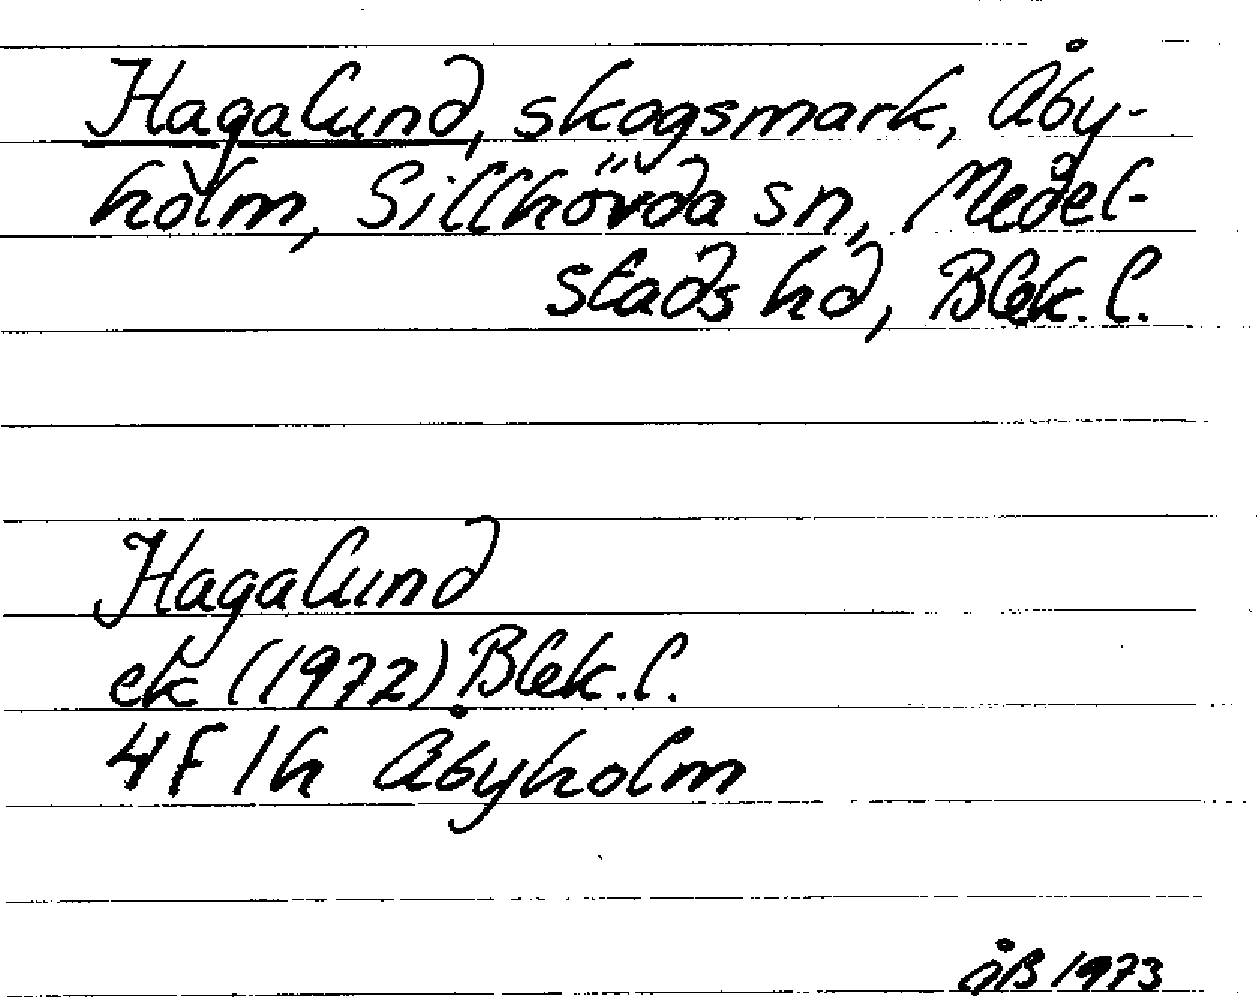 Hagalund, skogsmark, Åby-
holm, Sillhövda sn, Medel-
stads hd, Blek. l.
Hagalund
ek (1972) Blek. l.
4F 1h Åbyholm
ÅB 1973